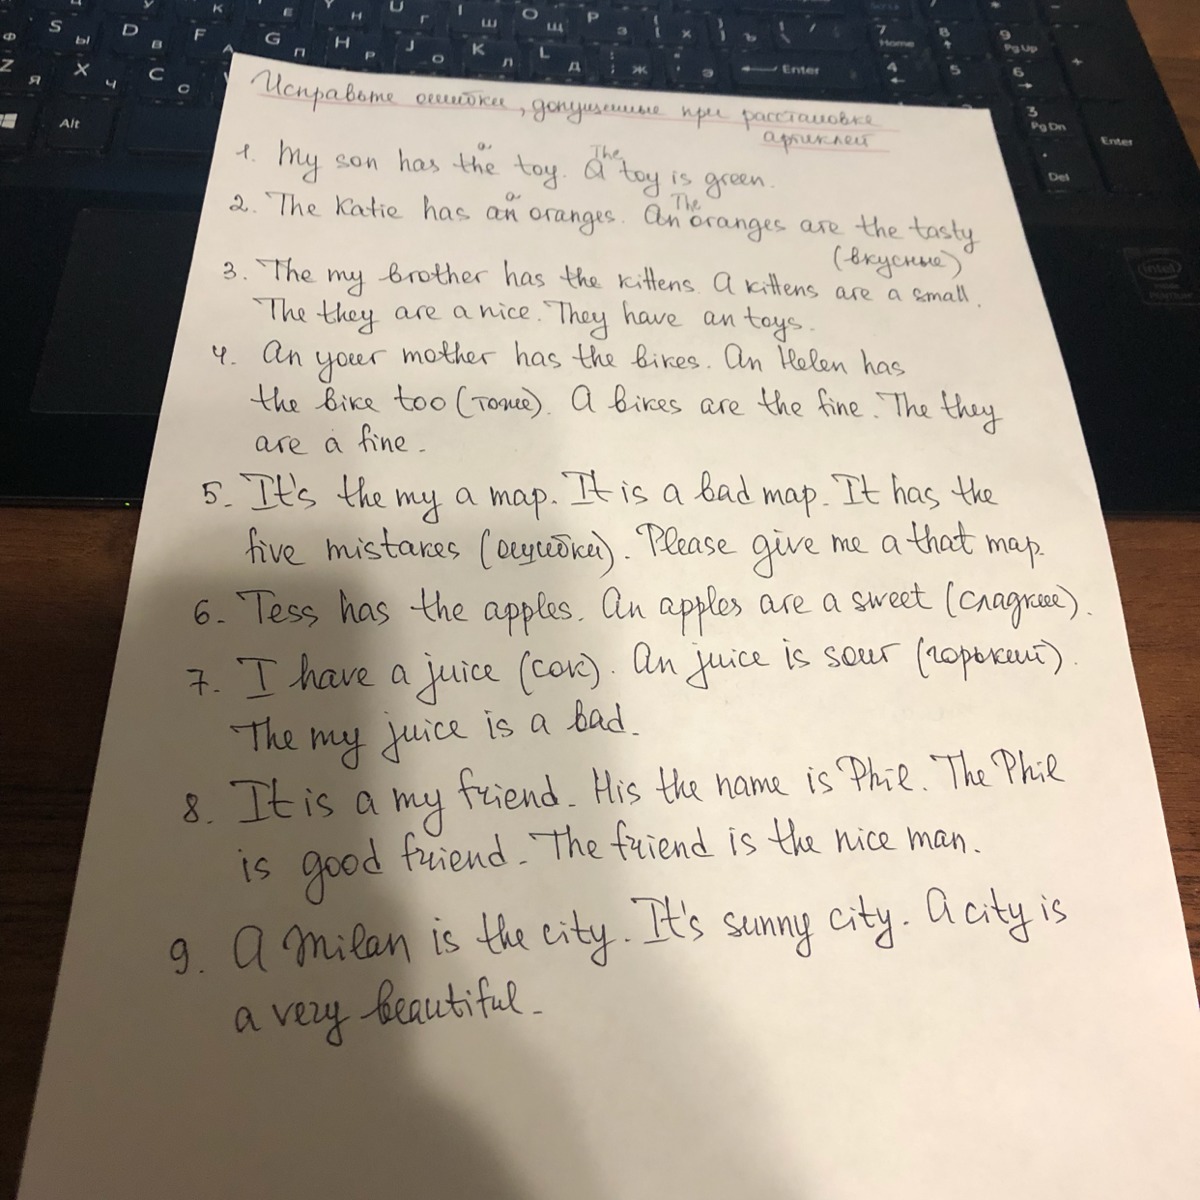 Исправьте ошибки, допущенные при расстановке
артиклей
1. My son has the toy. A toy is green.
a The
2. The Katie has an oranges. An oranges are the tasty
a The
(вкусные)
3. The my brother has the kittens. A kittens are a small.
The they are a nice. They have an toys.
4. An your mother has the bikes. An Helen has
the bike too (тоже). A bikes are the fine. The they
are a fine.
5. It's the my a map. It is a bad map. It has the
five mistakes (ошибки). Please give me a that map.
6. Tess has the apples. An apples are a sweet (сладкие).
7. I have a juice (сок). An juice is sour (горький).
The my juice is a bad.
8. It is a my friend. His the name is Phil. The Phil
is good friend. The friend is the nice man.
9. A Milan is the city. It's sunny city. A city is
a very beautiful.
Alt
Enter
7 Home
8
9 PgUp
4
5
6
+
3 PgDn
Enter
Del
S Ы
D В
F А
G П
H Р
J О
K Л
L Д
Z Я
X Ч
C С
intel